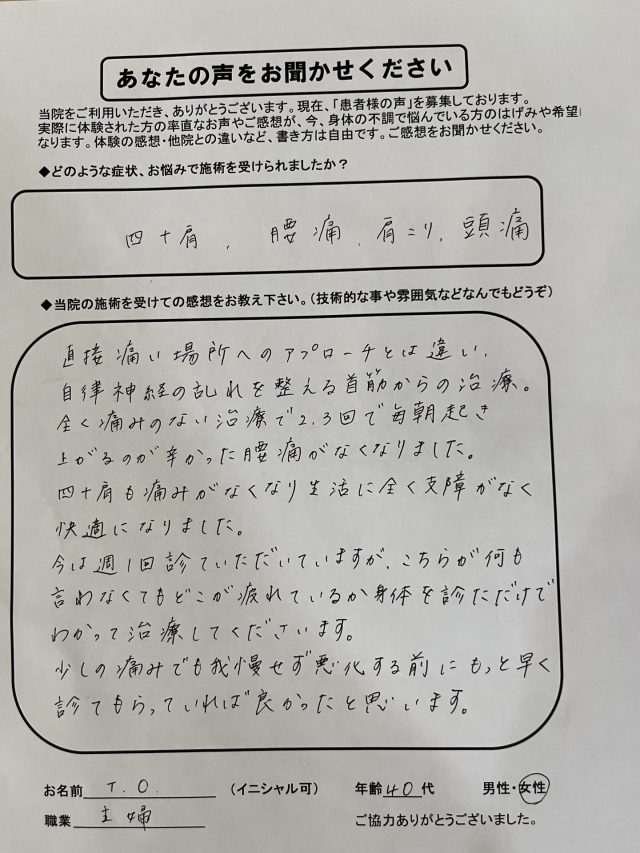 あなたの声をお聞かせください
当院をご利用いただき、ありがとうございます。現在、「患者様の声」を募集しております。
実際に体験された方の率直なお声やご感想が、今、身体の不調で悩んでいる方のはげみや希望に
なります。体験の感想・他院との違いなど、書き方は自由です。ご感想をお聞かせください。
◆どのような症状、お悩みで施術を受けられましたか？
四十肩、腰痛、肩こり、頭痛
◆当院の施術を受けての感想をお教え下さい。（技術的な事や雰囲気などなんでもどうぞ）
直接痛い場所へのアプローチとは違い、
自律神経の乱れを整える首筋からの治療。
全く痛みのない治療で2.3回で毎朝起き
上がるのが辛かった腰痛がなくなりました。
四十肩も痛みがなくなり生活に全く支障がなく
快適になりました。
今は週1回診ていただいていますが、こちらが何も
言わなくてもどこが疲れているか身体を診ただけで
わかって治療してくださいます。
少しの痛みでも我慢せず悪化する前にもっと早く
診てもらっていれば良かったと思います。
お名前 T.O. （イニシャル可） 年齢 40 代 男性・女性
職業 主婦 ご協力ありがとうございました。